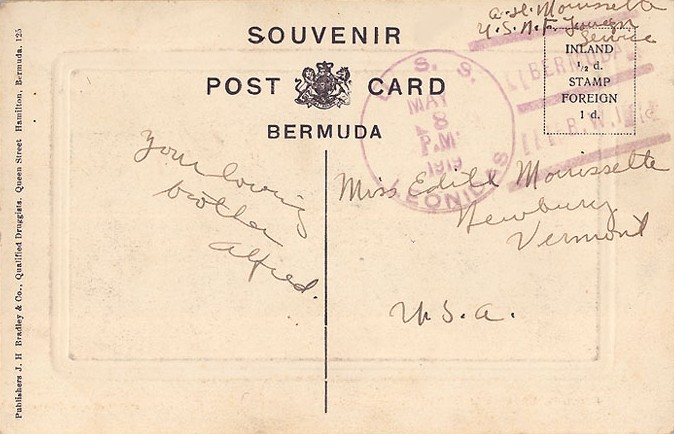 A. H. Morrissette
U.S.N.F. Foreign
Service
SOUVENIR
POST CARD
BERMUDA
INLAND
½ d.
STAMP
FOREIGN
1 d.
U. S. S.
MAY
8
P.M.
1919
LEONIDAS
BERMUDA
B.W.I.
Your loving
brother
Alfred.
Miss Edith Morrissette
Newbury
Vermont
U.S.A.
Publishers J. H Bradley & Co., Qualified Druggists, Queen Street Hamilton, Bermuda. 125